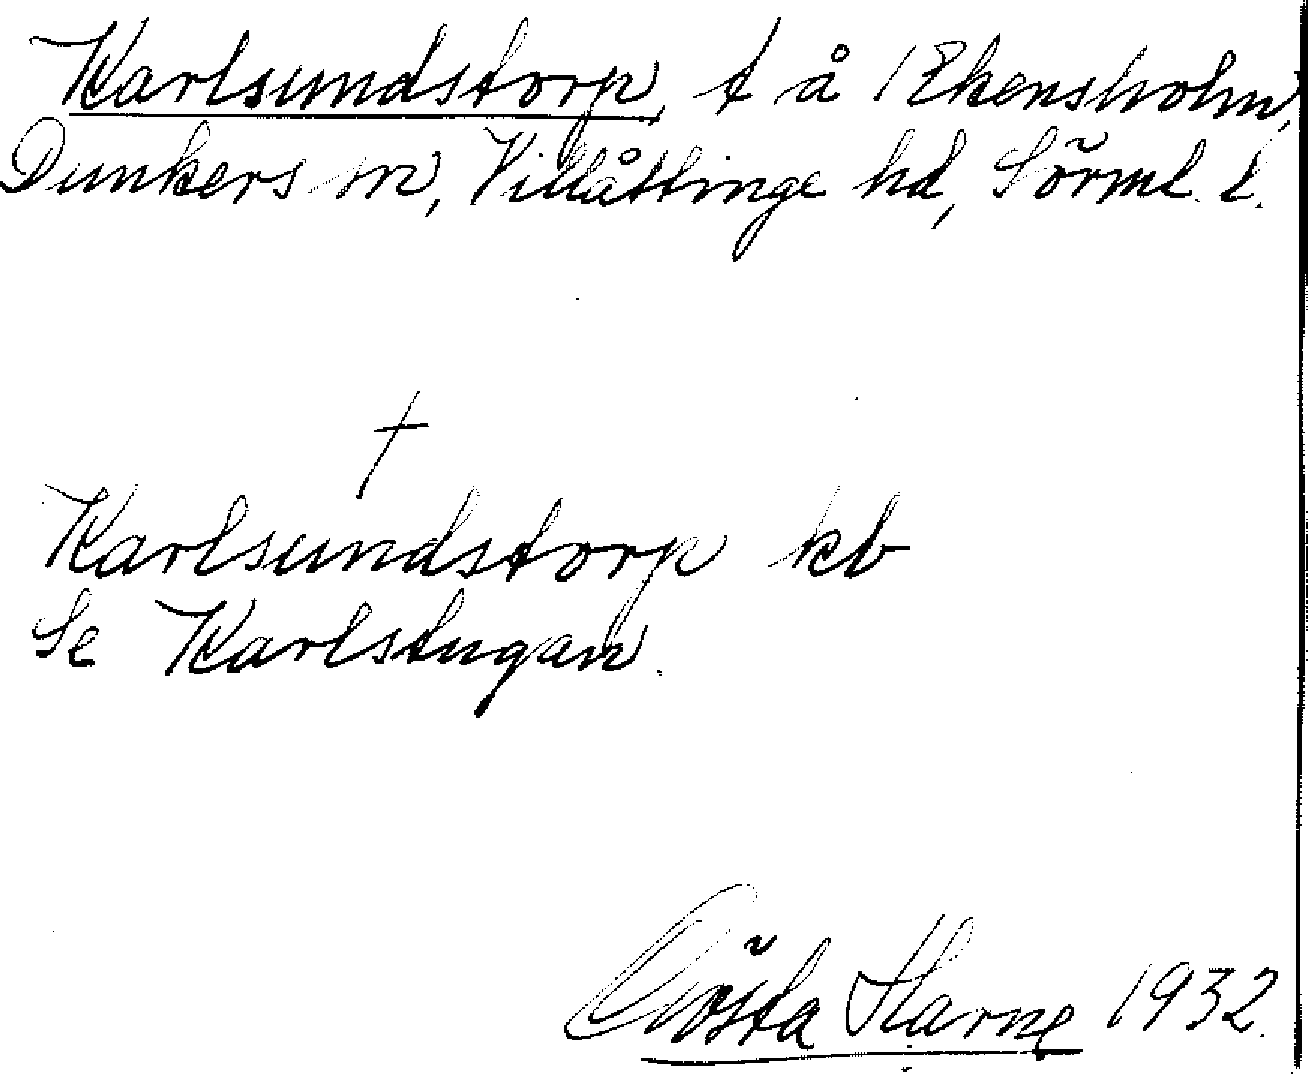 Karlsundstorp, t å Ekensholm,
Dunkers sn, Villåttinge hd, Sörml. l.
†
Karlsundstorp kb
Se Karlstugan.
Gösta Harne 1932.